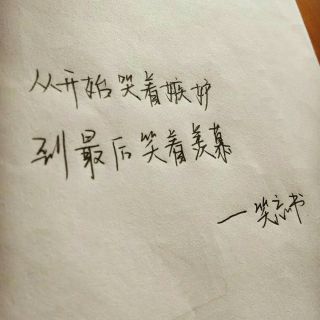 从开始哭着嫉妒
到最后笑着羡慕
一笑忘书